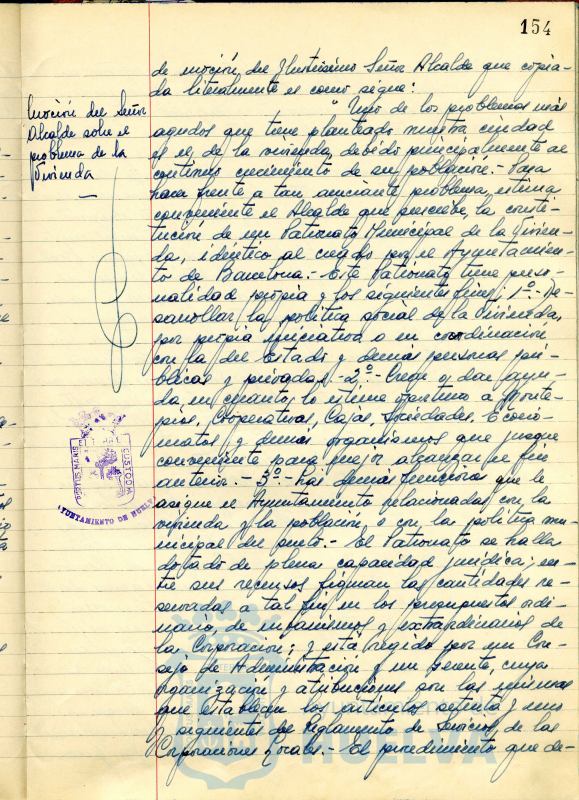 154
de moción, del Ilustrísimo Señor Alcalde que copia-
da literalmente es como sigue:
Moción del Señor
Alcalde sobre el
problema de la
Vivienda
"Uno de los problemas más
agudos que tiene planteado nuestra ciudad
es el de la vivienda, debido principalmente al
continuo crecimiento de su población.- Para
hacer frente a tan acuciante problema, estima
conveniente el Alcalde que suscribe, la consti-
tución de un Patronato Municipal de la Vivien-
da, idéntico al creado por el Ayuntamien-
to de Barcelona.- Este Patronato tiene perso-
nalidad propia y los siguientes fines: 1º.- De-
sarrollar la política social de la Vivienda,
por propia iniciativa o en coordinación
con la del Estado y demás personas pú-
blicas y privadas.- 2º.- Crear y dar ayu-
da en cuanto lo estime oportuno a Monte-
píos, Cooperativas, Cajas, Sociedades, Econo-
matos y demás organismos que juzgue
conveniente para mejor alcanzar el fin
anterior.- 3º.- Las demás funciones que le
asigne el Ayuntamiento relacionadas con la
vivienda y la población, o con la política mu-
nicipal del suelo.- El Patronato se halla
dotado de plena capacidad jurídica; en-
tre sus recursos figuran las cantidades re-
servadas a tal fin en los presupuestos ordi-
nario, de urbanismo y extraordinarios de
la Corporación; y está regido por un Con-
sejo de Administración y un Gerente, cuya
organización y atribuciones son las mismas
que establecen los artículos setenta y uno
y siguientes del Reglamento de Servicios de las
Corporaciones Locales.- El procedimiento que de-
PORTUS MARIS ET TERRAE CUSTODIA
AYUNTAMIENTO DE HUELVA
HUELVA